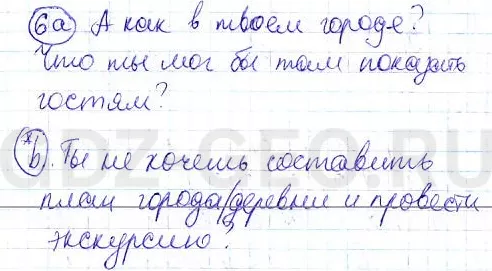 6a А как в твоем городе?
Что ты мог бы там показать
гостям?
*b. Ты не хочешь составить
план города/деревни и провести
экскурсию?